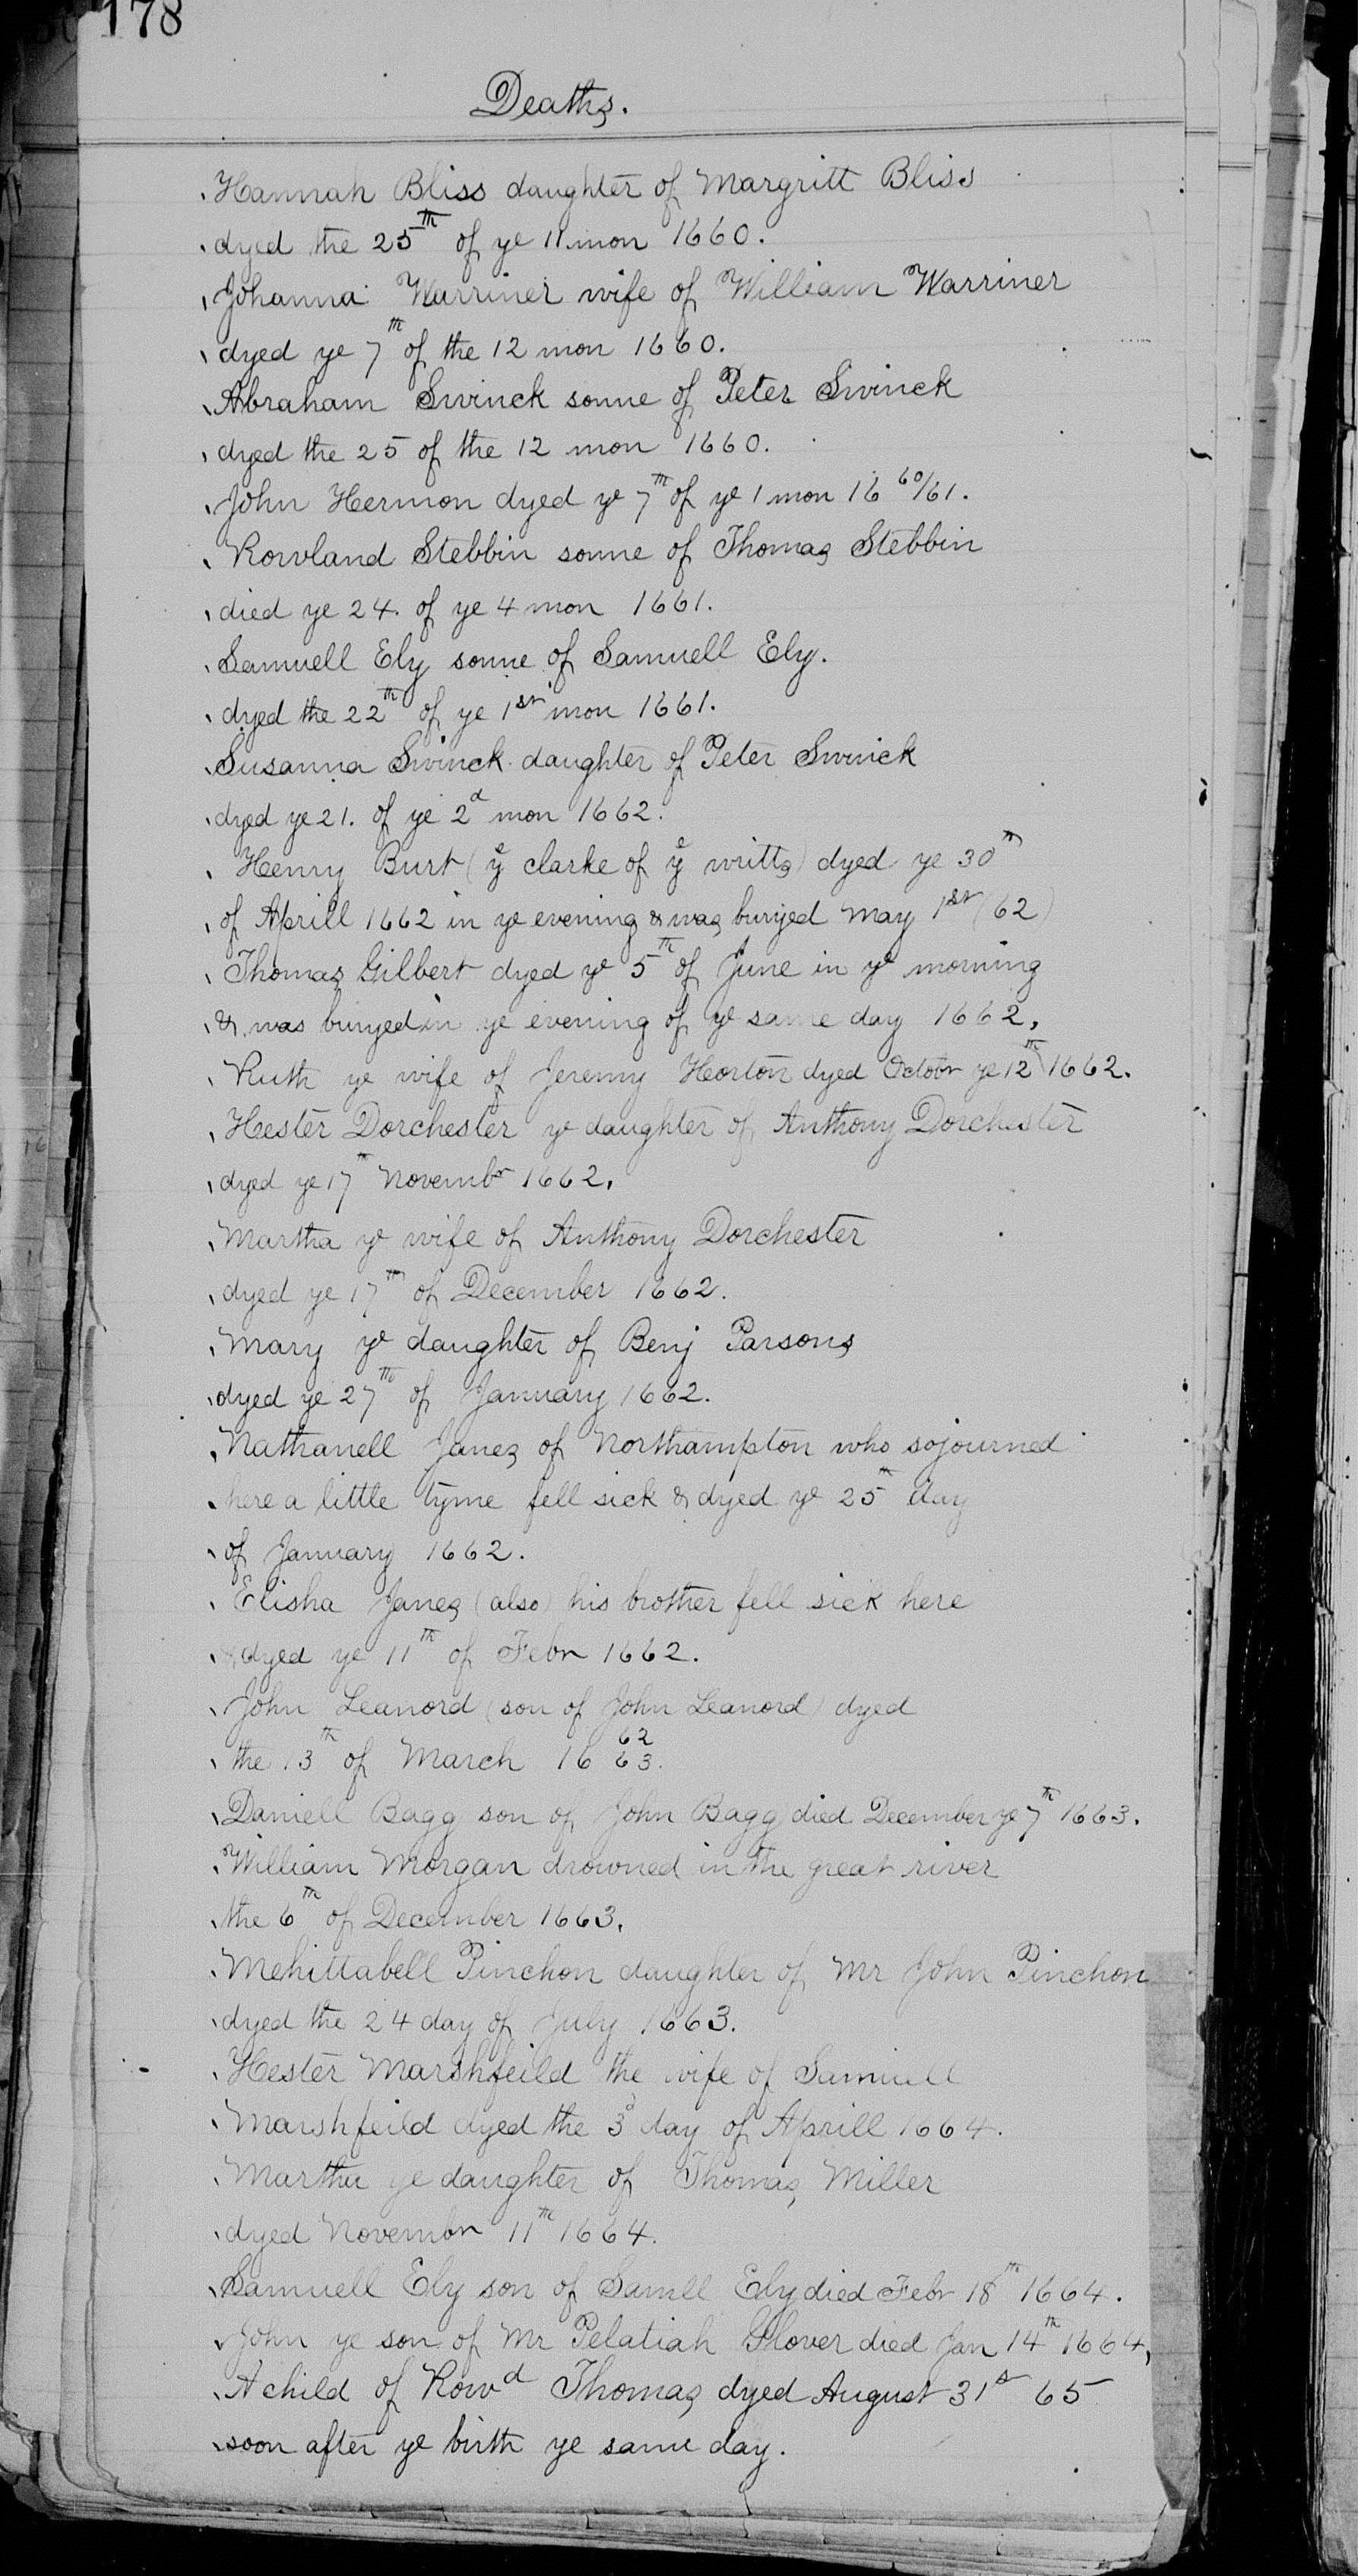 178
Deaths.
Hannah Bliss daughter of Margritt Bliss
dyed the 25th of ye 11 mon 1660.
Johanna Warriner wife of William Warriner
dyed ye 7th of the 12 mon 1660.
Abraham Swinck sonne of Peter Swinck
dyed the 25 of the 12 mon 1660.
John Hermon dyed ye 7th of ye 1 mon 16 60/61.
Rowland Stebbin sonne of Thomas Stebbin
died ye 24. of ye 4 mon 1661.
Samuell Ely sonne of Samuell Ely.
dyed the 22th of ye 1st mon 1661.
Susanna Swinck daughter of Peter Swinck
dyed ye 21. of ye 2d mon 1662.
Henry Burt (ye clarke of ye writts) dyed ye 30th
of Aprill 1662 in ye evening & was buryed May 1st (62)
Thomas Gilbert dyed ye 5th of June in ye morning
& was buryed in ye evening of ye same day 1662.
Ruth ye wife of Jeremy Horton dyed Octobr ye 12th 1662.
Hester Dorchester ye daughter of Anthony Dorchester
dyed ye 17th Novembr 1662.
Martha ye wife of Anthony Dorchester
dyed ye 17th of December 1662.
Mary ye daughter of Benj Parsons
dyed ye 27th of January 1662.
Nathanell Janes of Northampton who sojourned
here a little tyme fell sick & dyed ye 25th day
of January 1662.
Elisha Janes (also) his brother fell sick here
& dyed ye 11th of Febr 1662.
John Leanord (son of John Leanord) dyed
the 13th of March 16 62/63.
Daniell Bagg son of John Bagg died December ye 7th 1663.
William Morgan drowned in the great river
the 6th of December 1663.
Mehittabell Pinchon daughter of Mr John Pinchon
dyed the 24 day of July 1663.
Hester Marshfeild the wife of Samuell
Marshfeild dyed the 3d day of Aprill 1664.
Martha ye daughter of Thomas Miller
dyed Novembr 11th 1664.
Samuell Ely son of Samll Ely died Febr 18th 1664.
John ye son of Mr Pelatiah Glover died Jan 14th 1664,
A child of Rowd Thomas dyed August 31st 65
soon after ye birth ye same day.